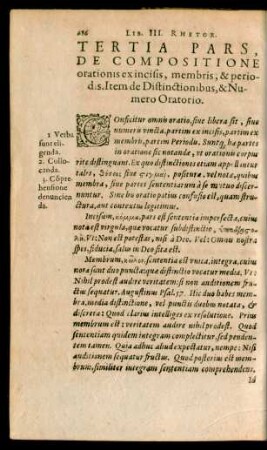 486 LIB. III. RHETOR.
TERTIA PARS,
DE COMPOSITIONE
orationis ex incisis, membris, & perio-
dis. Item de Distinctionibus, & Nu-
mero Oratorio.
1 Verba
sunt eli-
genda.
2. Collo-
canda.
3. Cōpre-
hensione
denuncian-
da.
COnficitur omnis oratio, siue libera sit, siue
numero vincta, partim ex incisis, partim ex
membris, partim Periodu. Sunto, hæ partes
in oratione sic notandæ, vt orationis corpus
rite distinguant. Ex quo distinctiones etiam appellantur
tales, Græcis siue , poseture, vel notæ, quibus
membra, siue partes sententiarum à se mutuo discer-
nuntur. Sine his oratio patim confusa est, quam struc-
tura, aut contextus legatimus.
Incisum, κόμμα, pars est sententia imperfecta, cuius
nota est virgula, quæ vocatur subdistinctio,
Vt: Non est potestas, nisi à Deo. Vel: Omnis nostra
spes, fiducia, salus in Deo sita est.
Membrum, κῶλον, sententia est vnica, integra, cuius
nota sunt duo puncta: quæ distinctio vocatur media. Vt:
Nihil prodest audire veritatem: si non auditionem fruc-
tus sequatur. Augustinus Psal. 57. Hic duo habes mem-
bra, media distinctione, vel punctis duobus notata, &
discreta: Quod clarius intelliges ex resolutione. Prius
membrum est: veritatem audire nihil prodest. Quod
sententiam quidem integram complectitur, sed penden-
tem tamen. Quia adhuc aliud expectatur, nempe: Nisi
auditionem sequatur fructus. Quod posterius est mem-
brum, similiter integram sententiam comprehendens.
Id